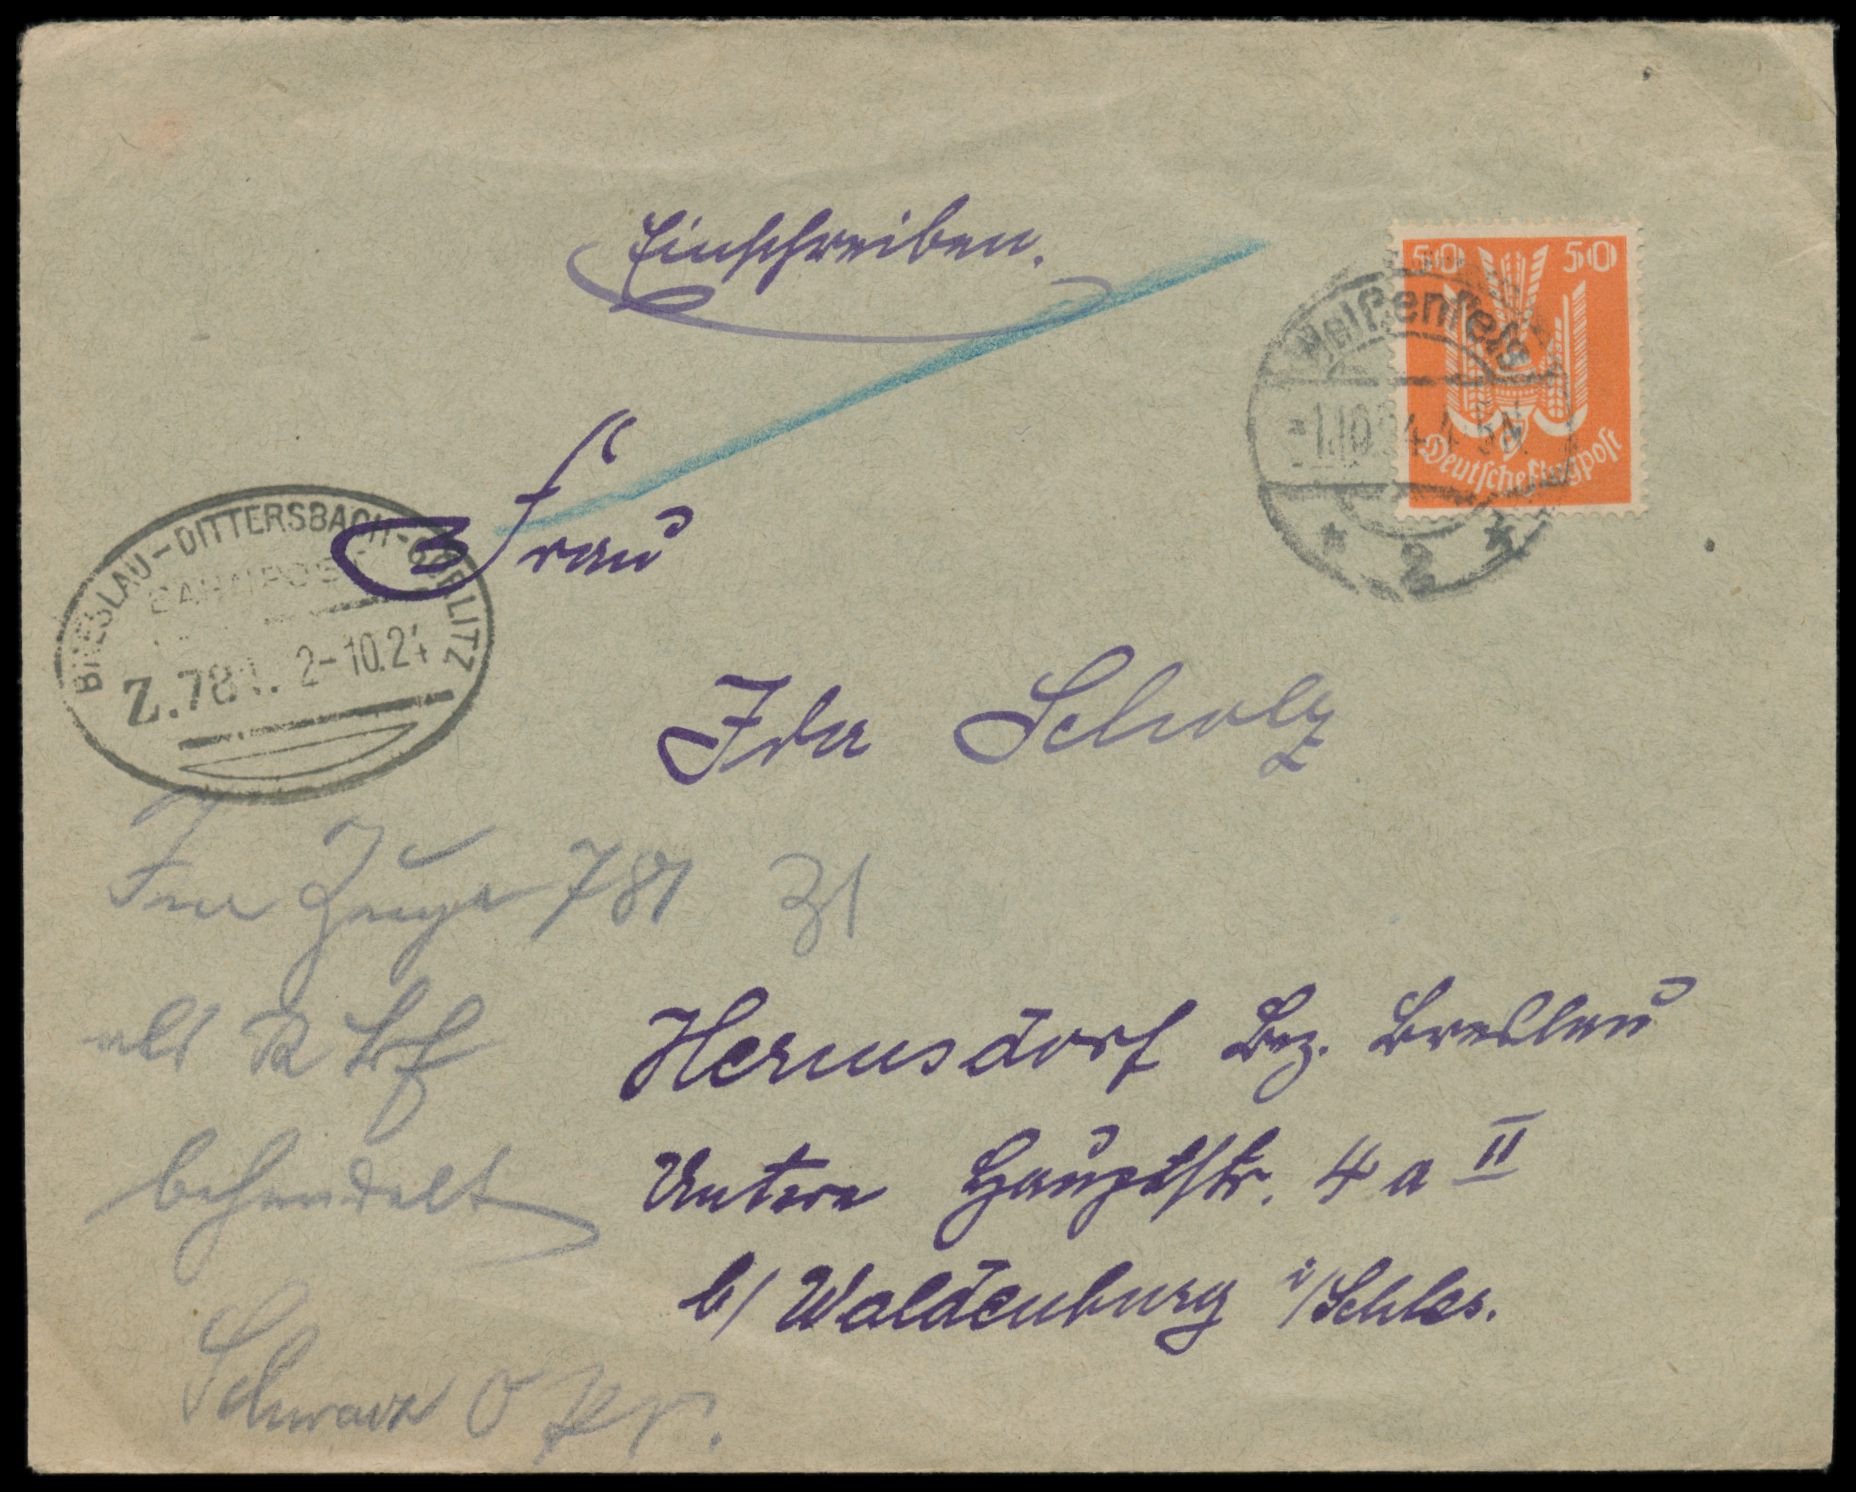 Einschreiben.
50 50
Deutsche Flugpost
Weißenfels
-1.10.24.4-5N.
* 2 *
BRESLAU-DITTERSBACH-GÖRLITZ
BAHNPOST
Z.781. 2-10.24
Frau
Ida Scholz
Im Zuge 781
als R Bf
behandelt
Schwarz
Hermsdorf Bez. Breslau
Untere Hauptstr. 4 a II
b/ Waldenburg i/Schles.